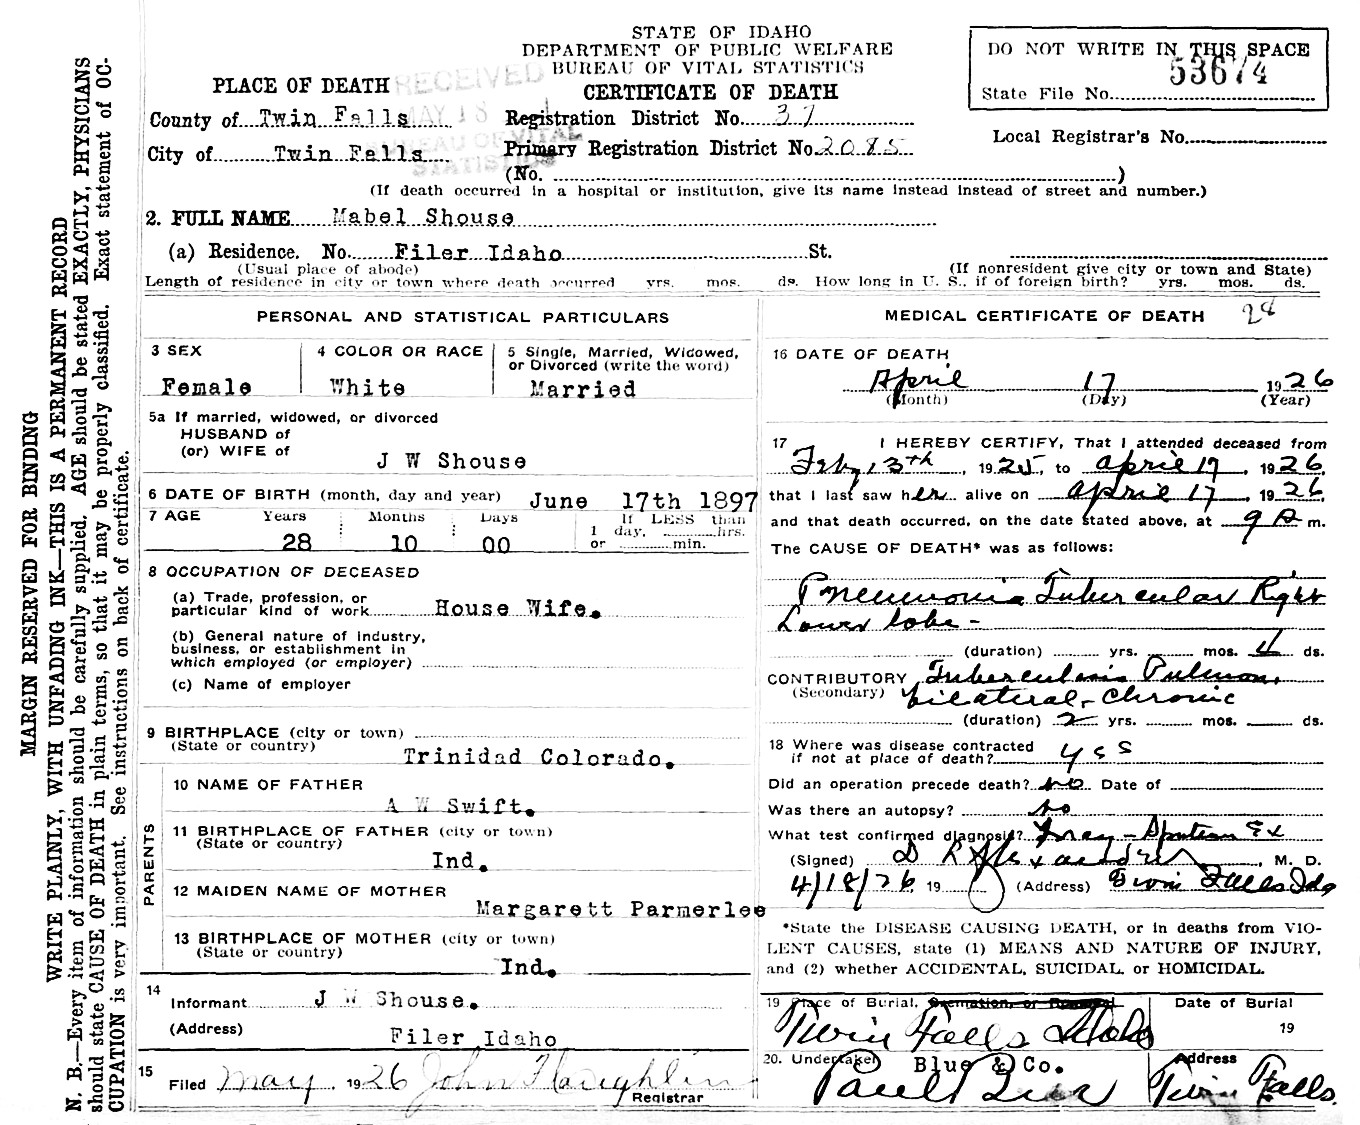 STATE OF IDAHO
DEPARTMENT OF PUBLIC WELFARE
BUREAU OF VITAL STATISTICS
CERTIFICATE OF DEATH
DO NOT WRITE IN THIS SPACE
53674
State File No.
Local Registrar's No.
RECEIVED
MAY 18
BUREAU OF VITAL
STATISTICS
PLACE OF DEATH
County of Twin Falls
Registration District No. 37
City of Twin Falls
Primary Registration District No. 2085
(No. )
(If death occurred in a hospital or institution, give its name instead instead of street and number.)
2. FULL NAME Mabel Shouse
(a) Residence. No. Filer Idaho St.
(Usual place of abode) (If nonresident give city or town and State)
Length of residence in city or town where death occurred yrs. mos. ds. How long in U. S., if of foreign birth? yrs. mos. ds.
PERSONAL AND STATISTICAL PARTICULARS
3 SEX 4 COLOR OR RACE 5 Single, Married, Widowed,
or Divorced (write the word)
Female White Married
5a If married, widowed, or divorced
HUSBAND of
(or) WIFE of
J W Shouse
6 DATE OF BIRTH (month, day and year) June 17th 1897
7 AGE Years Months Days If LESS than
1 day, hrs.
28 10 00 or min.
8 OCCUPATION OF DECEASED
(a) Trade, profession, or
particular kind of work House Wife.
(b) General nature of industry,
business, or establishment in
which employed (or employer)
(c) Name of employer
9 BIRTHPLACE (city or town)
(State or country) Trinidad Colorado.
PARENTS
10 NAME OF FATHER
A W Swift.
11 BIRTHPLACE OF FATHER (city or town)
(State or country)
Ind.
12 MAIDEN NAME OF MOTHER
Margarett Parmerlee
13 BIRTHPLACE OF MOTHER (city or town)
(State or country)
Ind.
14
Informant J W Shouse.
(Address)
Filer Idaho
15
Filed May 1926 John Haughlin
Registrar
MEDICAL CERTIFICATE OF DEATH 28
16 DATE OF DEATH
April 17 1926
(Month) (Day) (Year)
17 I HEREBY CERTIFY, That I attended deceased from
Feby 13th, 1925, to April 17, 1926,
that I last saw her alive on April 17, 1926
and that death occurred, on the date stated above, at 9 A m.
The CAUSE OF DEATH* was as follows:
Pneumonia Tubercular Right
Lower lobe -
(duration) yrs. mos. 4 ds.
CONTRIBUTORY Tuberculosis Pulmon.
(Secondary) bilateral - Chronic
(duration) 2 yrs. mos. ds.
18 Where was disease contracted
if not at place of death? yes
Did an operation precede death? no Date of
Was there an autopsy? no
What test confirmed diagnosis? Xray - Sputum Ex
(Signed) D R Alexander, M. D.
4/18/26 19 (Address) Twin Falls Ida
*State the DISEASE CAUSING DEATH, or in deaths from VIO-
LENT CAUSES, state (1) MEANS AND NATURE OF INJURY,
and (2) whether ACCIDENTAL, SUICIDAL or HOMICIDAL.
19 Place of Burial, Cremation, or Removal Date of Burial
Twin Falls Idaho 19
20. Undertaker Blue & Co. Address
Paul Twin Falls.
MARGIN RESERVED FOR BINDING
WRITE PLAINLY, WITH UNFADING INK—THIS IS A PERMANENT RECORD
N. B.—Every item of information should be carefully supplied. AGE should be stated EXACTLY, PHYSICIANS
should state CAUSE OF DEATH in plain terms, so that it may be properly classified. Exact statement of OC-
CUPATION is very important. See instructions on back of certificate.